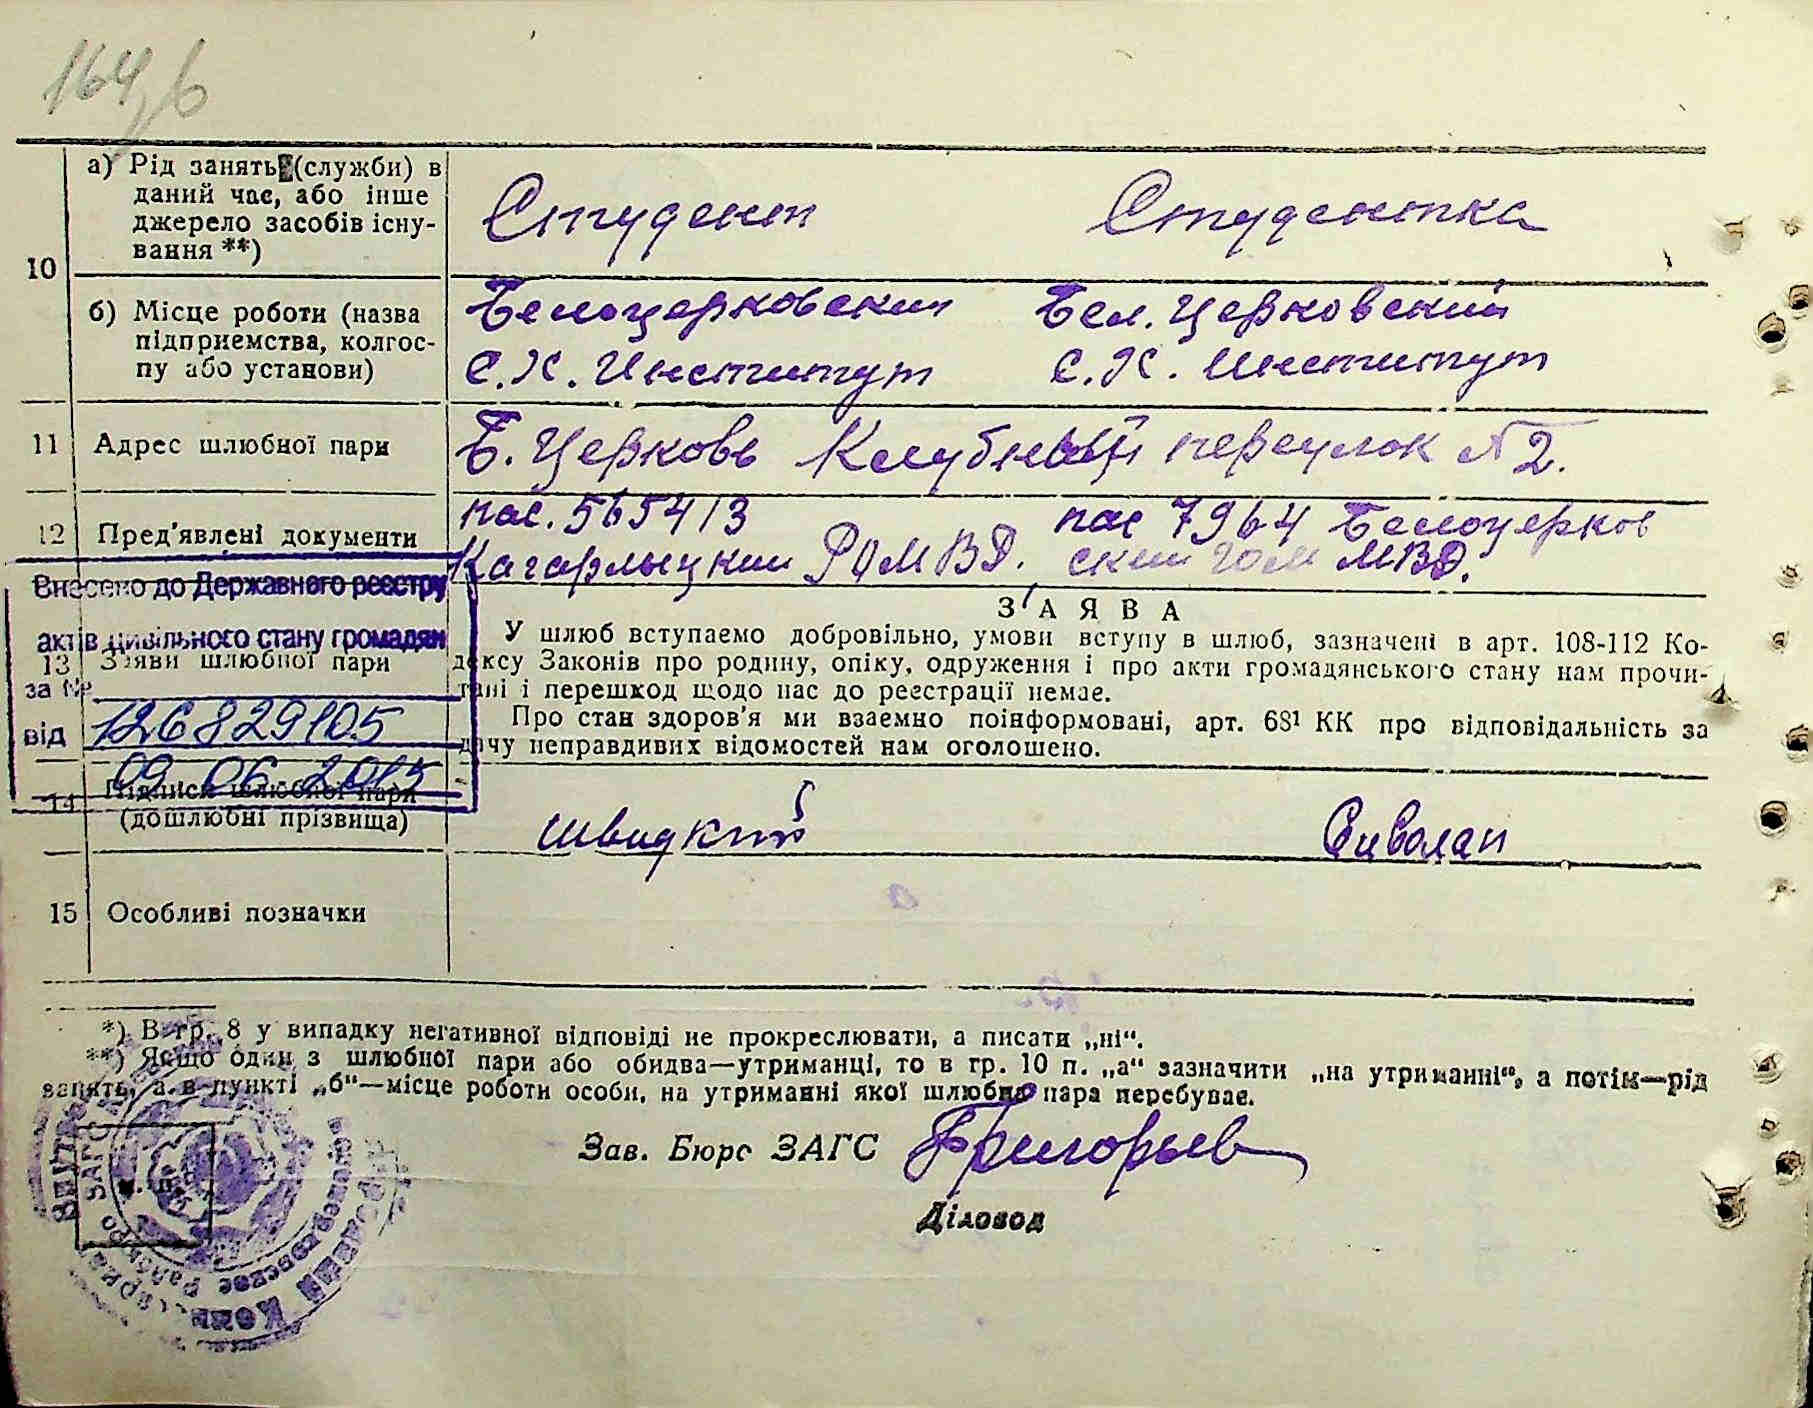 164, б
10
а) Рід занять (служби) в
даний час, або інше
джерело засобів існу-
вання **)
Студент
Студентка
б) Місце роботи (назва
підприємства, колгос-
пу або установи)
Белоцерковский
С.Х. Институт
Бел. Церковский
С.Х. Институт
11 Адрес шлюбної пари
Б. Церковь Клубный переулок №2.
12 Пред'явлені документи
пас. 565413
Кагарлыцким РОМВД.
пас 7964 Белоцерков
ским ГОМ МВД.
Внесено до Державного реєстру
актів цивільного стану громадян
за №
126829105
від
09 06 2015
13 Заяви шлюбної пари
ЗАЯВА
У шлюб вступаємо добровільно, умови вступу в шлюб, зазначені в арт. 108-112 Ко-
дексу Законів про родину, опіку, одруження і про акти громадянського стану нам прочи-
тані і перешкод щодо нас до реєстрації немає.
Про стан здоров'я ми взаємно поінформовані, арт. 68¹ КК про відповідальність за
дачу неправдивих відомостей нам оголошено.
14 Підписи шлюбної пари
(дошлюбні прізвища)
Швидкий
Сиволап
15 Особливі позначки
*) В гр. 8 у випадку негативної відповіді не прокреслювати, а писати „ні“.
**) Якщо один з шлюбної пари або обидва—утриманці, то в гр. 10 п. „а“ зазначити „на утриманні“, а потім—рід
занять, а в пункті „б“—місце роботи особи, на утриманні якої шлюбна пара перебуває.
Зав. Бюро ЗАГС Григорьев
Діловод